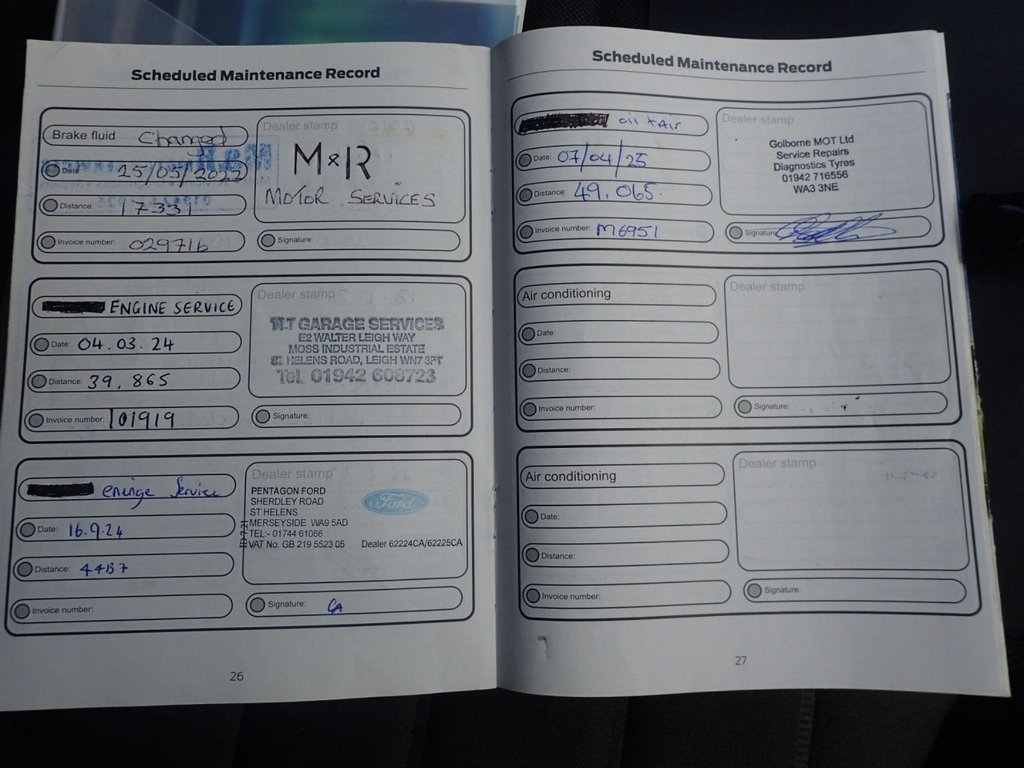 Scheduled Maintenance Record
Brake fluid Changed
Date: 25/05/2022
Distance: 17331
Invoice number: 029716
Dealer stamp
M&R
MOTOR SERVICES
Signature:
ENGINE SERVICE
Date: 04.03.24
Distance: 39,865
Invoice number: 01919
Dealer stamp
GARAGE SERVICES
E2 WALTER LEIGH WAY
MOSS INDUSTRIAL ESTATE
ST. HELENS ROAD, LEIGH WN7 3PT
Tel. 01942 608723
Signature:
eninge Service
Date: 16.9.24
Distance:
Invoice number:
Dealer stamp
PENTAGON FORD
SHERDLEY ROAD
ST HELENS
MERSEYSIDE WA9 5AD
TEL:- 01744 61066
VAT No. GB 219 5523 05 Dealer 62224CA/62225CA
Ford
Signature: CA
26
Scheduled Maintenance Record
oil & Air
Date: 07/04/25
Distance: 49.065
Invoice number: M6951
Dealer stamp
Golborne MOT Ltd
Service Repairs
Diagnostics Tyres
01942 716556
WA3 3NE
Signature:
Air conditioning
Date:
Distance:
Invoice number:
Dealer stamp
Signature:
Air conditioning
Date:
Distance:
Invoice number:
Dealer stamp
Signature:
27